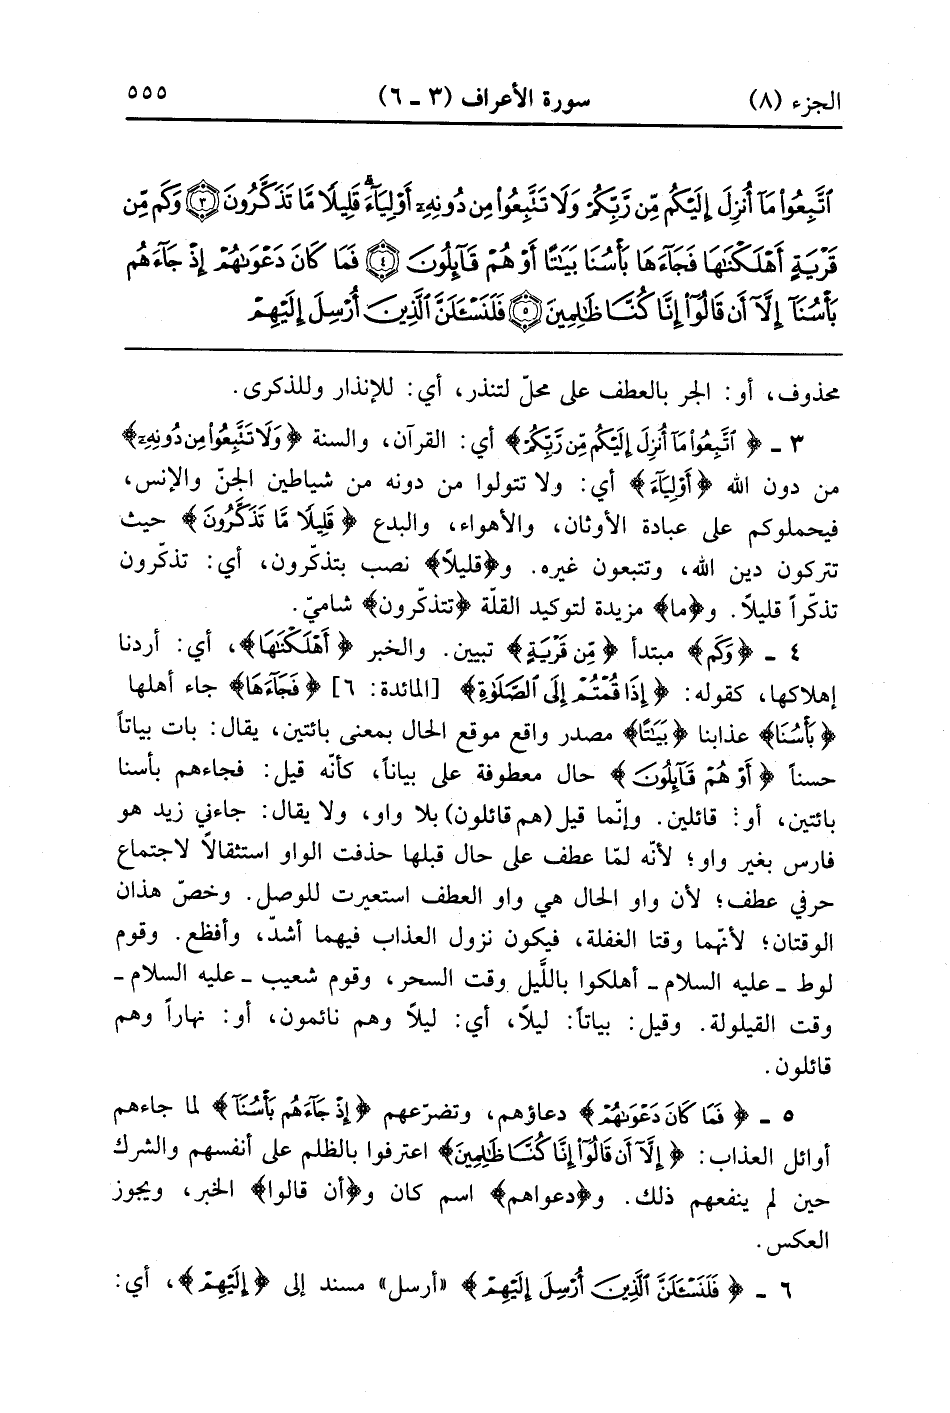 الجزء (٨) سورة الأعراف (٣ - ٦) ٥٥٥
ٱتَّبِعُوا۟ مَآ أُنزِلَ إِلَيْكُم مِّن رَّبِّكُمْ وَلَا تَتَّبِعُوا۟ مِن دُونِهِۦٓ أَوْلِيَآءَ ۗ قَلِيلًا مَّا تَذَكَّرُونَ ﴿٣﴾ وَكَم مِّن
قَرْيَةٍ أَهْلَكْنَٰهَا فَجَآءَهَا بَأْسُنَا بَيَٰتًا أَوْ هُمْ قَآئِلُونَ ﴿٤﴾ فَمَا كَانَ دَعْوَىٰهُمْ إِذْ جَآءَهُم
بَأْسُنَآ إِلَّآ أَن قَالُوٓا۟ إِنَّا كُنَّا ظَٰلِمِينَ ﴿٥﴾ فَلَنَسْـَٔلَنَّ ٱلَّذِينَ أُرْسِلَ إِلَيْهِمْ
محذوف، أو: الجر بالعطف على محلّ لتنذر، أي: للإنذار وللذكرى.
٣ - ﴿ٱتَّبِعُوا۟ مَآ أُنزِلَ إِلَيْكُم مِّن رَّبِّكُمْ﴾ أي: القرآن، والسنة ﴿وَلَا تَتَّبِعُوا۟ مِن دُونِهِۦٓ﴾
من دون الله ﴿أَوْلِيَآءَ﴾ أي: ولا تتولوا من دونه من شياطين الجنّ والإنس،
فيحملوكم على عبادة الأوثان، والأهواء، والبدع ﴿قَلِيلًا مَّا تَذَكَّرُونَ﴾ حيث
تتركون دين الله، وتتبعون غيره. و﴿قليلاً﴾ نصب بتذكّرون، أي: تذكّرون
تذكّراً قليلاً. و﴿ما﴾ مزيدة لتوكيد القلّة ﴿تتذكّرون﴾ شاميّ.
٤ - ﴿وَكَم﴾ مبتدأ ﴿مِّن قَرْيَةٍ﴾ تبيين. والخبر ﴿أَهْلَكْنَٰهَا﴾، أي: أردنا
إهلاكها، كقوله: ﴿إِذَا قُمْتُمْ إِلَى ٱلصَّلَوٰةِ﴾ [المائدة: ٦] ﴿فَجَآءَهَا﴾ جاء أهلها
﴿بَأْسُنَا﴾ عذابنا ﴿بَيَٰتًا﴾ مصدر واقع موقع الحال بمعنى بائتين، يقال: بات بياتاً
حسناً ﴿أَوْ هُمْ قَآئِلُونَ﴾ حال معطوفة على بياتاً، كأنّه قيل: فجاءهم بأسنا
بائتين، أو: قائلين. وإنّما قيل (هم قائلون) بلا واو، ولا يقال: جاءني زيد هو
فارس بغير واو؛ لأنّه لمّا عطف على حال قبلها حذفت الواو استثقالاً لاجتماع
حرفي عطف؛ لأن واو الحال هي واو العطف استعيرت للوصل. وخصّ هذان
الوقتان؛ لأنّهما وقتا الغفلة، فيكون نزول العذاب فيهما أشدّ، وأفظع. وقوم
لوط - عليه السلام - أهلكوا باللَّيل وقت السحر، وقوم شعيب - عليه السلام -
وقت القيلولة. وقيل: بياتاً: ليلاً، أي: ليلاً وهم نائمون، أو: نهاراً وهم
قائلون.
٥ - ﴿فَمَا كَانَ دَعْوَىٰهُمْ﴾ دعاؤهم، وتضرّعهم ﴿إِذْ جَآءَهُم بَأْسُنَآ﴾ لما جاءهم
أوائل العذاب: ﴿إِلَّآ أَن قَالُوٓا۟ إِنَّا كُنَّا ظَٰلِمِينَ﴾ اعترفوا بالظلم على أنفسهم والشرك
حين لم ينفعهم ذلك. و﴿دعواهم﴾ اسم كان و﴿أن قالوا﴾ الخبر، ويجوز
العكس.
٦ - ﴿فَلَنَسْـَٔلَنَّ ٱلَّذِينَ أُرْسِلَ إِلَيْهِمْ﴾ «أرسل» مسند إلى ﴿إِلَيْهِمْ﴾، أي: